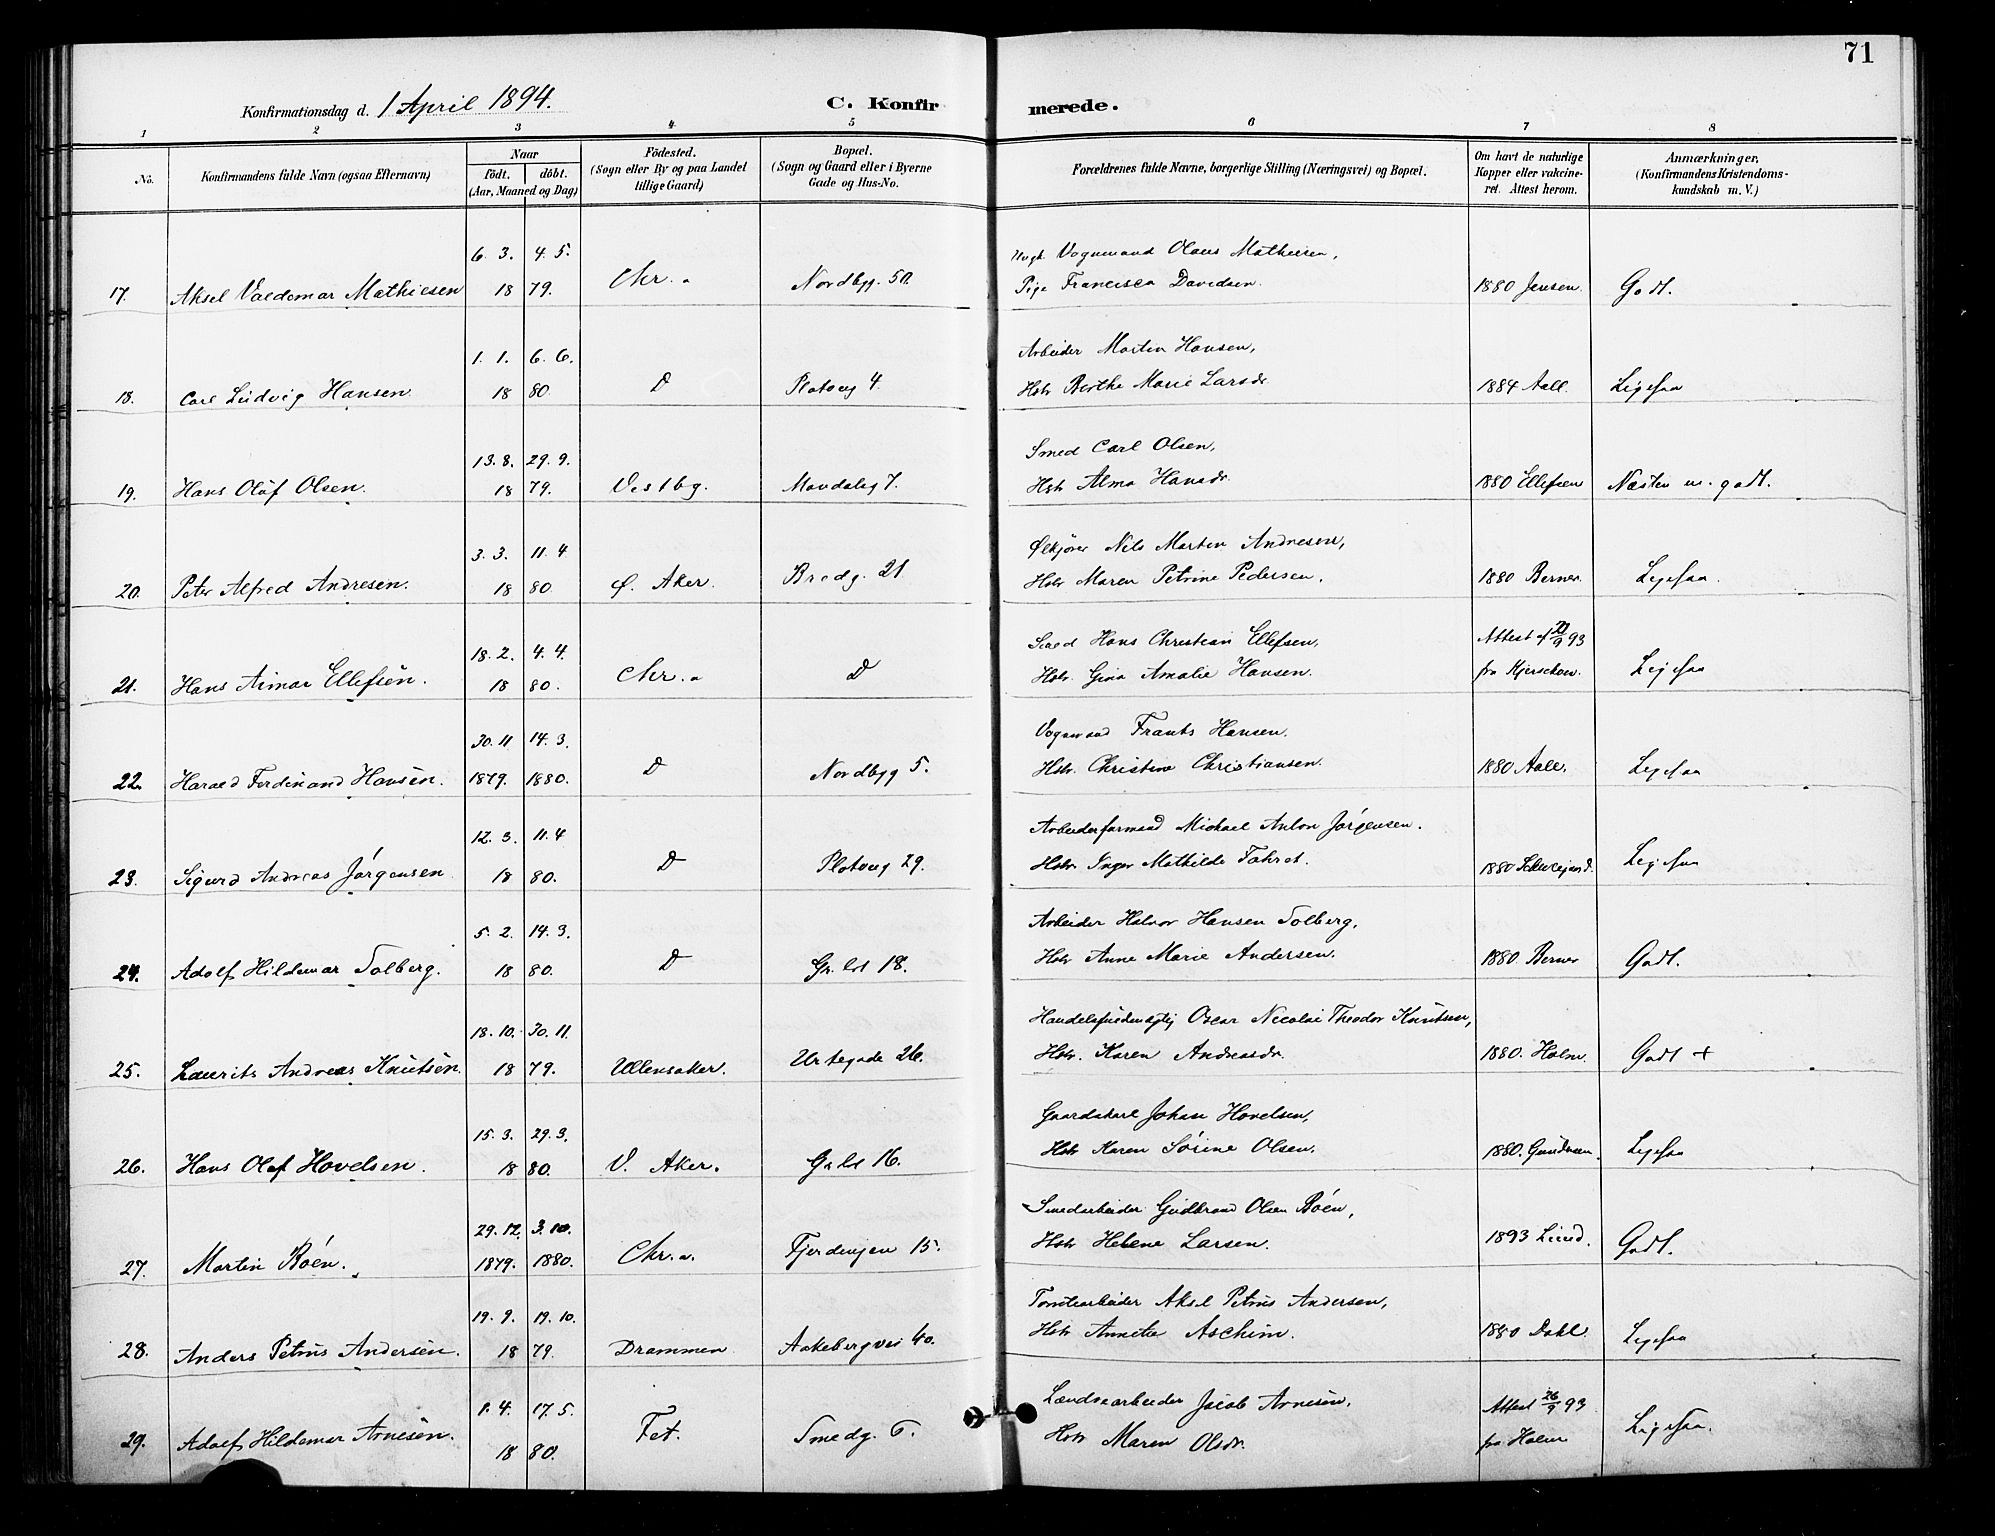 71
Konfirmationsdag d. 1 April 1894.
C. Konfirmerede.
1 2 3 4 5 6 7 8
No.
Konfirmandens fulde Navn (ogsaa Efternavn)
Naar
födt. döbt.
(Aar, Maaned og Dag)
Födested.
(Sogn eller By og paa Landet
tillige Gaard)
Bopæl.
(Sogn og Gaard eller i Byerne
Gade og Hus-No.
Forældrenes fulde Navne, borgerlige Stilling (Næringsvei) og Bopæl.
Om havt de naturlige
Kopper eller vakcine-
ret. Attest herom.
Anmærkninger,
(Konfirmandens Kristendoms-
kundskab m. V.)
6. 3. 4. 5. Ungk. Vognmand Olaus Mathiesen,
17. Aksel Valdemar Mathiesen 18 79. Chr.a Nordbyg. 50. Pige Francisca Davidsen. 1880 Jensen. Godt.
1. 1. 6. 6. Arbeider Martin Hansen,
18. Carl Ludvig Hansen 18 80. D Platoug 4. Hstr Berthe Marie Larsdr 1884 Aall. Ligesaa
13. 8. 29. 9. Smed Carl Olsen,
19. Hans Olaf Olsen. 18 79. Vestbg. Mandalsg 7. Hstr Alma Hansdr. 1880 Ellefsen Næsten m. godt.
3. 3. 11. 4 Ølkjører Nils Martin Andresen,
20. Peter Alfred Andresen. 18 80. Ø. Aker. Bredg. 21 Hstr Maren Petrine Pedersen. 1880 Berner. Ligesaa.
18. 2. 4. 4. Hans Christian Ellefsen, Attest 9 93
21. Hans Aimar Ellefsen. 18 80. Chr.a D Hstr. Gina Amalie Hansen. fra Kjerschow. Ligesaa
30. 11 14. 3. Vognmand Frants Hansen.
22. Harald Ferdinand Hansen. 1879. 1880. D Nordbyg 5. Hstr. Christine Christiansen. 1880 Aall. Ligesaa
12. 3. 11. 4 Arbeiderformand Michael Anton Jörgensen.
23. Sigurd Andreas Jörgensen 18 80. D Platoug 29. Hstr Inger Mathilde 1880 Ligesaa
5. 2. 14. 3. Arbeider Halvor Hansen Solberg,
24. Adolf Hildemar Solberg. 18 80. D Gr.ldt 18. Hstr Anne Marie Andersen. 1880 Berner Godt.
18. 10. 30. 11. Handelsfuldmægtig Oscar Nicolai Theodor Knutsen,
25. Laurits Andreas Knutsen. 18 79. Ullensaker. Urtegade 26. Hstr. Karen Andreasdr. 1880. Holm. Godt +
15. 3. 29. 3. Gaardskarl Johan Hovelsen,
26. Hans Olaf Hovelsen. 18 80. V. Aker. Gr.ld 16. Hstr Karen Sörine Olsen. 1880. Gundersen. Ligesaa
29. 12. 3. 10. Smedarbeider Gudbrand Olsen Röen,
27. Martin Röen. 1879. 1880. Chr.a. Fjerdingen 15. Hstr Helene Larsen. 1893 Lund. Godt.
19. 9. 19. 10. Tomtearbeider Aksel Petrus Andersen,
28. Anders Petrus Andersen. 18 79. Drammen Aakebergvei 40. Hstr Annette Aschim. 1880 Dahl. Ligesaa
1. 4. 17. 5. Lændsearbeider Jacob Arnesen, Attest 26/9 93
29. Adolf Hildemar Arnesen. 18 80. Fet. Smedg. 6. Hstr Maren Olsdr. fra Holm Ligesaa.